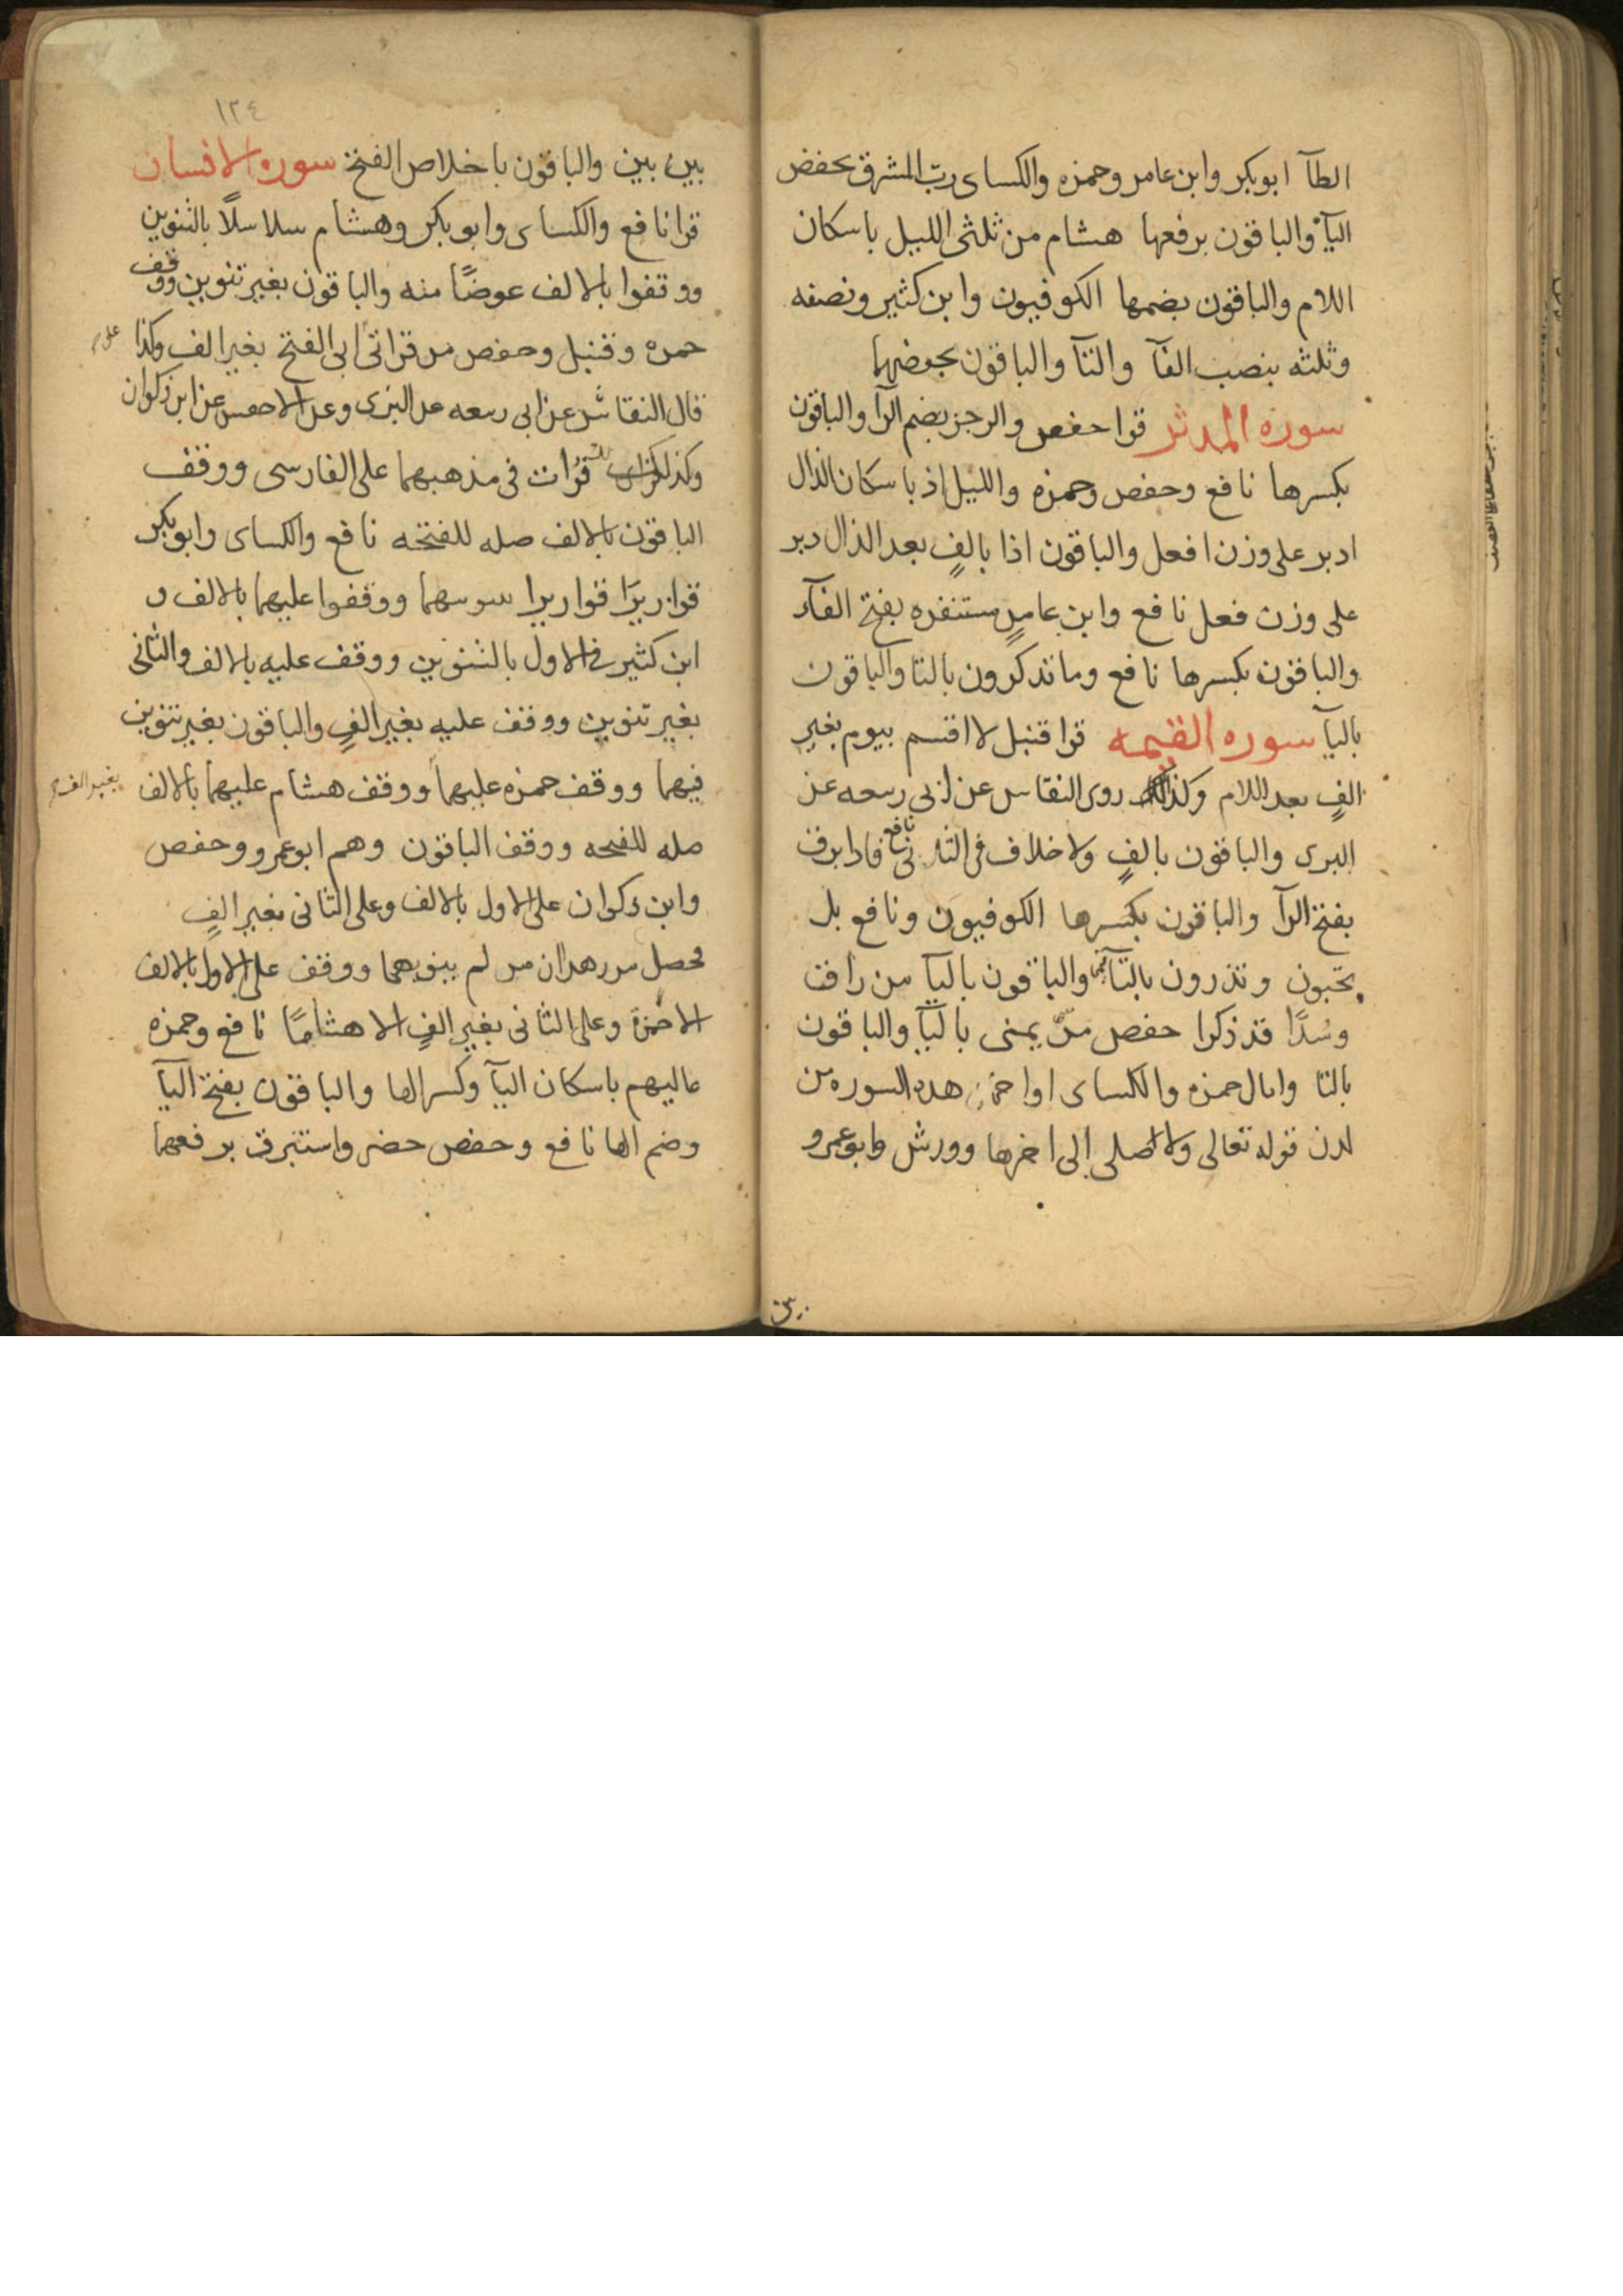 الطآ ابو بكر وابن عامر وحمزه والكساى ربّ المشرق بخفض
اليآء والباقون برفعها هشام من ثلثى الليل باسكان
اللام والباقون بضمها الكوفيون وابن كثير ونصفه
وثلثه بنصب الفآ والثآ والباقون بخفضهما
سورة المدثر قرا حفص والرجز بضم الرآ والباقون
بكسرها نافع وحفص وحمزه والليل اذ باسكان الذال
ادبر على وزن افعل والباقون اذا بالفٍ بعد الذال دبر
على وزن فعل نافع وابن عامرٍ مستنفره بفتح الفآء
والباقون بكسرها نافع وما تذكرون بالتا والباقون
باليآ سوره القيمه قرا قنبل لا اقسم بيوم بغير
الفٍ بعد اللام وكذلك روى النقاس عن ابى ربيعه عن
البزى والباقون بالفٍ ولا خلاف فى الثانى نافع فاذا برق
بفتح الرآ والباقون بكسرها الكوفيون ونافع بل
تحبون وتذرون بالتآ فيهما والباقون باليآ من راق
وسُدًا قد ذكرا حفص من منىّ يمنى باليآ والباقون
بالتا وامال حمزه والكساى اواخر هذه السوره من
لدن قوله تعالى ولا صلى الى اخرها وورش وابو عمرو
بين
١٢٤
بين بين والباقون باخلاص الفتح سوره الانسان
قرا نافع والكساى وابو بكر وهشام سلاسلًا بالتنوين
ووقفوا بالالف عوضًا منه والباقون بغير تنوين ووقف
حمزه وقنبل وحفص من قراتى على ابى الفتح بغير الف وكذا
قال النقاش عن ابى ربيعه عن البزى وعن الاخفس عن ابن ذكوان
وكذلك قرات فى مذهبهما على الفارسى ووقف
الباقون بالالف صله للفتحه نافع والكساى وابو بكر
قواريرًا قواريرا بتنوينهما ووقفوا عليهما بالالف و
ابن كثير فى الاول بالتنوين ووقف عليه بالالف والثانى
بغير تنوين ووقف عليه بغير الفٍ والباقون بغير تنوين
فيهما ووقف حمزه عليهما بغير الف ووقف هشام عليهما بالالف
صله للفتحه ووقف الباقون وهم ابو عمرو وحفص
وابن ذكوان على الاول بالالف وعلى الثانى بغير الفٍ
فحصل من هذا ان من لم ينونهما ووقف على الاول بالالف
الا حمزة وعلى الثانى بغير الفٍ الا هشامًا نافع وحمزه
عاليهم باسكان اليآ وكسر الها والباقون بفتح اليآ
وضم الها نافع وحفص خضر واستبرق برفعهما